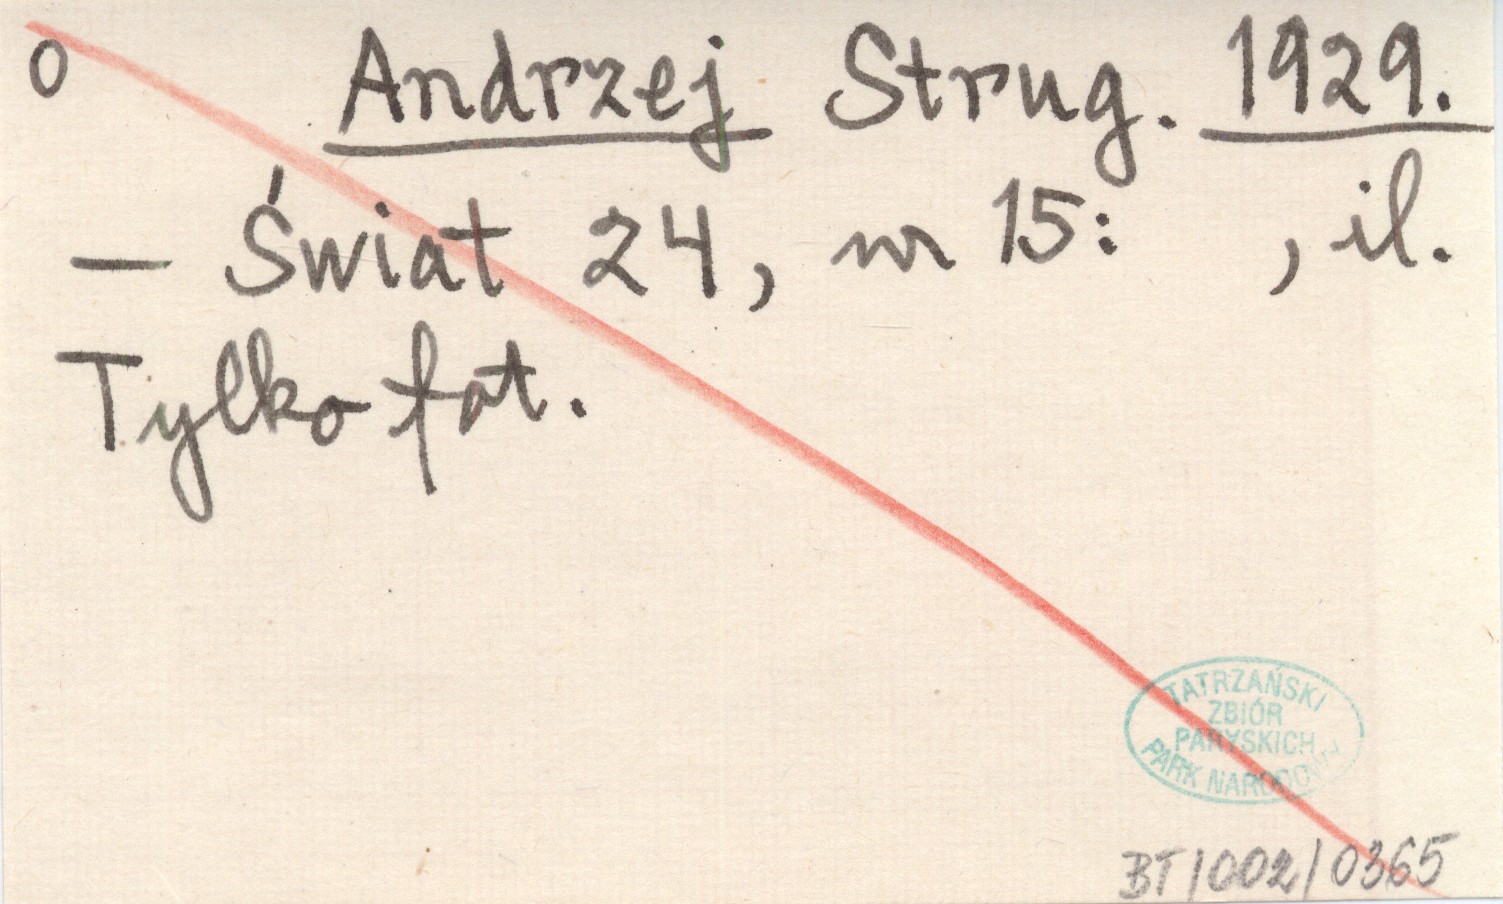 o Andrzej Strug. 1929.
— Świat 24, nr 15: , il.
Tylko fot.
TATRZAŃSKI
ZBIÓR
PARYSKICH
PARK NARODOWY
BT/002/0365